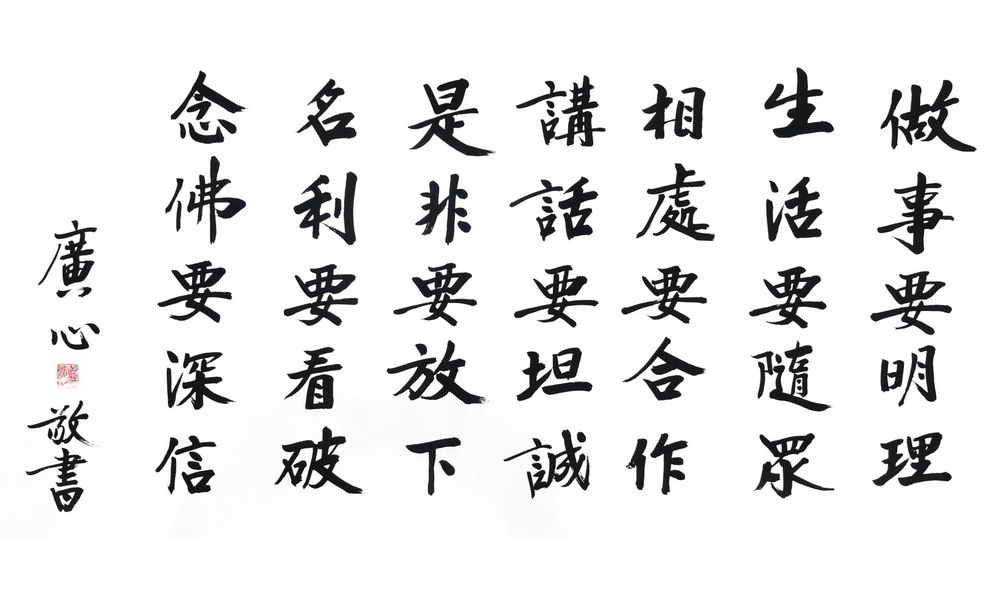 做事要明理
生活要隨眾
相處要合作
講話要坦誠
是非要放下
名利要看破
念佛要深信
廣心
敬書